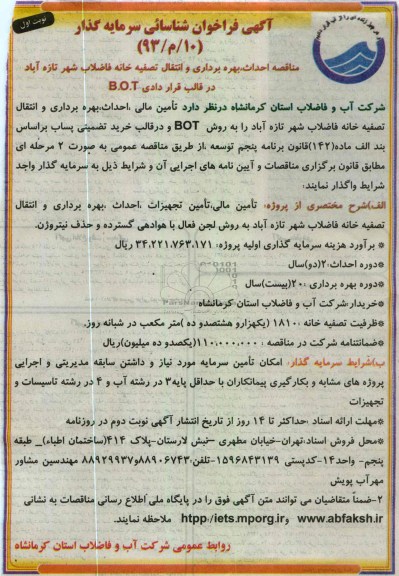 نوبت اول
آگهی فراخوان شناسائی سرمایه گذار
(۱۰/م/۹۳)
مناقصه احداث،بهره برداری و انتقال تصفیه خانه فاضلاب شهر تازه آباد
در قالب قرار دادی B.O.T
شرکت آب و فاضلاب استان کرمانشاه درنظر دارد تأمین مالی ،احداث،بهره برداری و انتقال
تصفیه خانه فاضلاب شهر تازه آباد را به روش BOT و درقالب خرید تضمینی پساب براساس
بند الف ماده(۱۴۲)قانون برنامه پنجم توسعه ،از طریق مناقصه عمومی به صورت ۲ مرحله ای
مطابق قانون برگزاری مناقصات و آیین نامه های اجرایی آن و شرایط ذیل به سرمایه گذار واجد
شرایط واگذار نمایند:
الف)شرح مختصری از پروژه: تأمین مالی،تأمین تجهیزات ،احداث ،بهره برداری و انتقال
تصفیه خانه فاضلاب شهر تازه آباد به روش لجن فعال با هوادهی گسترده و حذف نیتروژن.
* برآورد هزینه سرمایه گذاری اولیه پروژه: ۳۴،۲۲۱،۷۶۳،۱۷۱ ریال
*دوره احداث:۲(دو)سال
*دوره بهره برداری :۲۰(بیست)سال
*خریدار:شرکت آب و فاضلاب استان کرمانشاه
*ظرفیت تصفیه خانه :۱۸۱۰ (یکهزارو هشتصدو ده )متر مکعب در شبانه روز.
*ضمانتنامه شرکت در مناقصه : ۱۱۰،۰۰۰،۰۰۰(یکصدو ده میلیون)ریال
ب)شرایط سرمایه گذار: امکان تأمین سرمایه مورد نیاز و داشتن سابقه مدیریتی و اجرایی
پروژه های مشابه و بکارگیری پیمانکاران با حداقل پایه۳ در رشته آب و ۴ در رشته تاسیسات و
تجهیزات
*مهلت ارائه اسناد :حداکثر تا ۱۴ روز از تاریخ انتشار آگهی نوبت دوم در روزنامه
*محل فروش اسناد:تهران-خیابان مطهری –نبش لارستان-پلاک ۴۱۴(ساختمان اطباء)_ طبقه
پنجم- واحد۱۴-کدپستی ۱۵۹۶۸۴۳۱۳۹-تلفن:۸۸۹۰۶۷۴۳و۸۸۹۲۹۹۳۷ مهندسین مشاور
مهرآب پویش
۲-ضمناً متقاضیان می توانند متن آگهی فوق را در پایگاه ملی اطلاع رسانی مناقصات به نشانی
www.abfaksh.ir وhttp://iets.mporg.ir ملاحظه نمایند.
روابط عمومی شرکت آب و فاضلاب استان کرمانشاه